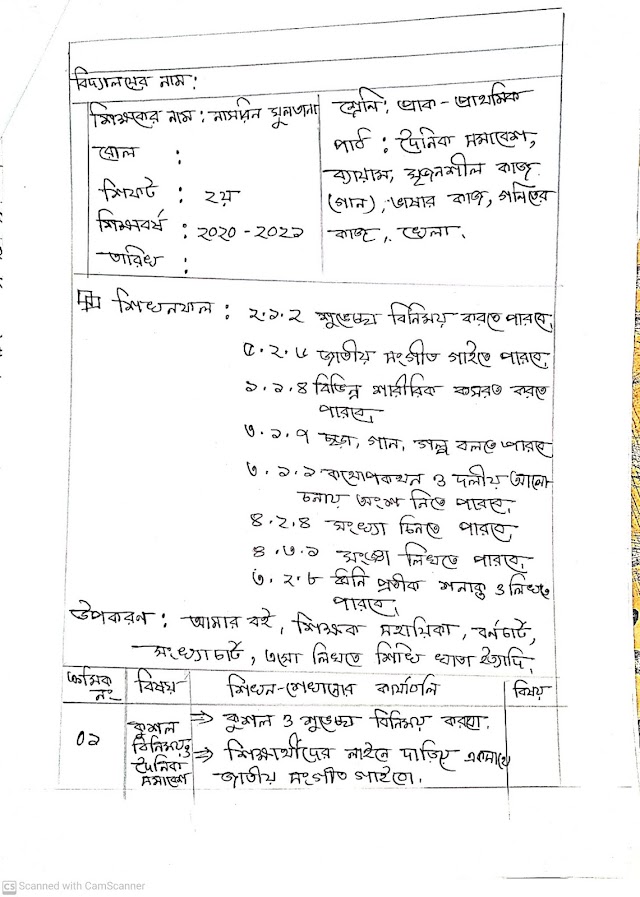 বিদ্যালয়ের নাম:
শিক্ষকের নাম: নাসরিন সুলতানা
রোল :
শিফট : ২য়
শিক্ষাবর্ষ : ২০২০ - ২০২১
তারিখ :
শ্রেনি: প্রাক - প্রাথমিক
পাঠ : দৈনিক সমাবেশ,
ব্যায়াম, সৃজনশীল কাজ
(গান), ভাষার কাজ, গনিতের
কাজ, খেলা.
শিখনফল : ২.১.২ শুভেচ্ছা বিনিময় করতে পারবে,
৫.২.৬ জাতীয় সংগীত গাইতে পারবে,
১.১.৪ বিভিন্ন শারীরিক কসরত করতে
পারবে,
৩.১.৭ ছড়া, গান, গল্প বলতে পারবে
৩.১.১ কথোপকথন ও দলীয় আলো
চনায় অংশ নিতে পারবে,
৪.২.৪ সংখ্যা চিনতে পারবে,
৪.৩.১ সংখ্যা লিখতে পারবে,
৩.২.৮ ধ্বনি প্রতীক শনাক্ত ও লিখতে
পারবে,
উপকরণ : আমার বই, শিক্ষক সহায়িকা, বর্নচার্ট,
সংখ্যাচার্ট, এসো লিখতে শিখি খাতা ইত্যাদি,
ক্রমিক নং বিষয় শিখন-শেখানোর কার্যাবলি বিষয়
০১ কুশল বিনিময় ও দৈনিক সমাবেশ
⇒ কুশল ও শুভেচ্ছা বিনিময় করবো.
⇒ শিক্ষার্থীদের লাইনে দাড়িয়ে একসাথে
জাতীয় সংগীত গাইবো.
CS Scanned with CamScanner